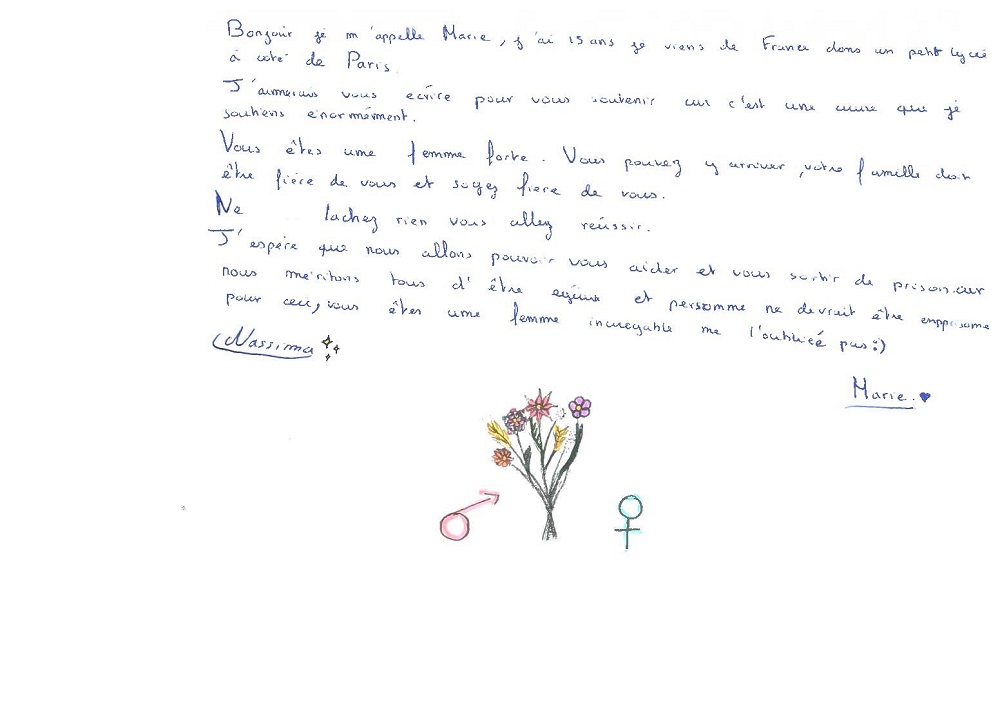 Bonjour je m'appelle Marie, j'ai 15 ans je viens de France dans un petit lycée
à coté de Paris.
J'aimerais vous ecrire pour vous soutenir car c'est une cause que je
soutiens énormément.
Vous êtes une femme forte. Vous pouvez y arriver, votre famille doit
être fière de vous et soyez fiere de vous.
Ne lachez rien vous allez reüssir.
J'espère que nous allons pouvoir vous aider et vous sortir de prison car
nous méritons tous d'être egaux et personne ne devrait être empprisonne
pour ceci, vous êtes une femme incroyable ne l'oubliéé pas :)
Nassima
Marie.